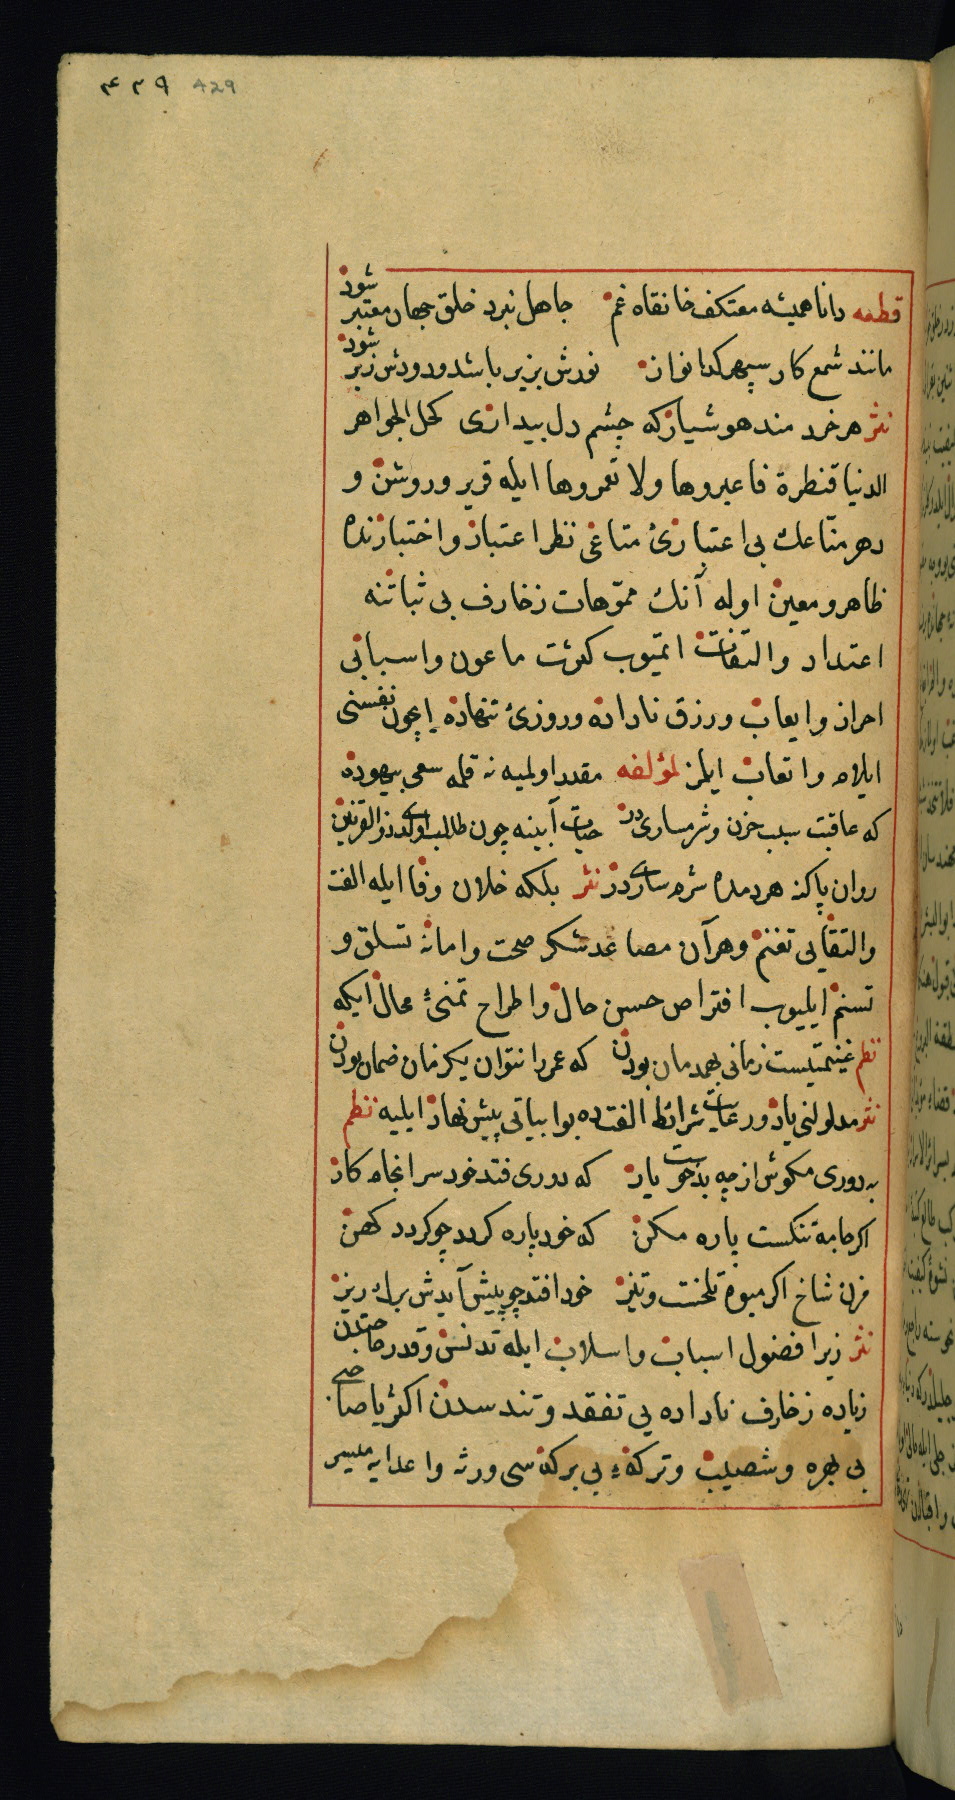 ۴۳۹ ۸۲۹
قطعه دانا همیشه معتکف خانقاه غم جاهل نبرد خلق جهان معتبر شود
مانند شمع کار سپهر کدا نواز نورش بزیر باشد ودودش زبر شود
نثر هر خرد مند هوشیار که چشم دل بیداری کحل الجواهر
الدنیا قنطرة فاعبروها ولا تعمروها ایله قریر وروشن و
دهر منّاعك بی اعتباری متاعی نظر اعتبار واختبارنده
ظاهر ومعین اوله آنك مموّهات زخارف بی ثباتنه
اعتداد والتفات ایتمیوب کوئت ماعون واسبابی
احراز وایعاب ورزق ناداده وروزیٔ ننهاده ایچون نفسنی
ایلام واتعاب ایلمز لمؤلفه مقدر اولمیه نه قلمه سعی بیهوده
که عاقبت سبب حزن وشرمساری در حیات آبینه چون طالب اولدی ذو القرنین
روان پاکنه هردمده شرمساری در نثر بلکه خلان وفا ایله الفت
والتقایی تغنم وهرآن مصاعد شکر صحت وامانه تسلق و
تسنم ایلیوب افتراص حسن حال واطراح تمنیٔ محال ایکه
نظم غنیمتیست زمانی بهمدمان بودن که عمر را نتوان یکزمان ضمان بودن
نثر مدلولنی یاد ورعایت شرائط الفتده بو ابیاتی پیش نهاد ایلیه نظم
به دوری مکوش ارچه بدخوست یار که دوری فتد خود سرانجام کار
اکر جامه تنکست پاره مکن که خود پاره کردد چو کردد کهن
مزن شاخ اکر میوه تلخست وتیز خود افتد چو پیش آیدش برك ریز
نثر زیرا فضول اسباب واسلاب ایله تدنس وقدر حاجتدن
زیاده زخارف ناداده یی تفقد وتندسدن اکثریا صاحبی
بی بهره ونصیب وترکهٔ بی برکه‌سی ورثه واعدایه میسر